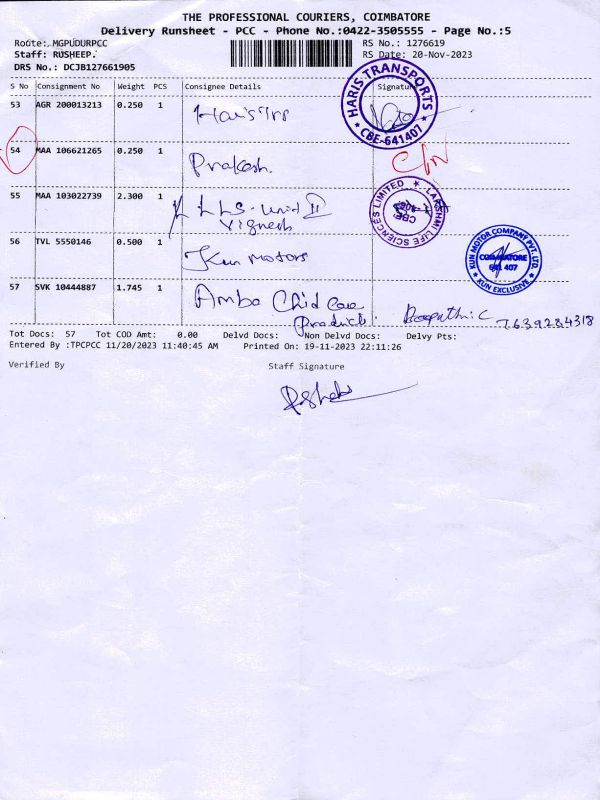 THE PROFESSIONAL COURIERS, COIMBATORE
Delivery Runsheet - PCC - Phone No.:0422-3505555 - Page No.:5
Route: MGPUDURPCC RS No.: 1276619
Staff: RUSHEEP. RS Date: 20-Nov-2023
DRS No.: DCJB127661905
S No Consignment No Weight PCS Consignee Details Signature
53 AGR 200013213 0.250 1
HARIS TRANSPORTS
* CBE-641407 *
54 MAA 106621265 0.250 1 Prakash.
55 MAA 103022739 2.300 1 LLS-Unit II
Vignesh
LAKSHMI LIFE SCIENCES LIMITED
CBE
56 TVL 5550146 0.500 1 Kun Motors
KUN MOTOR COMPANY PVT. LTD.
COIMBATORE
641 407
* KUN EXCLUSIVE *
57 SVK 10444887 1.745 1 Amba Child Care
Products. Boopathi. C 7639284318
Tot Docs: 57 Tot COD Amt: 0.00 Delvd Docs: Non Delvd Docs: Delvy Pts:
Entered By :TPCPCC 11/20/2023 11:40:45 AM Printed On: 19-11-2023 22:11:26
Verified By Staff Signature